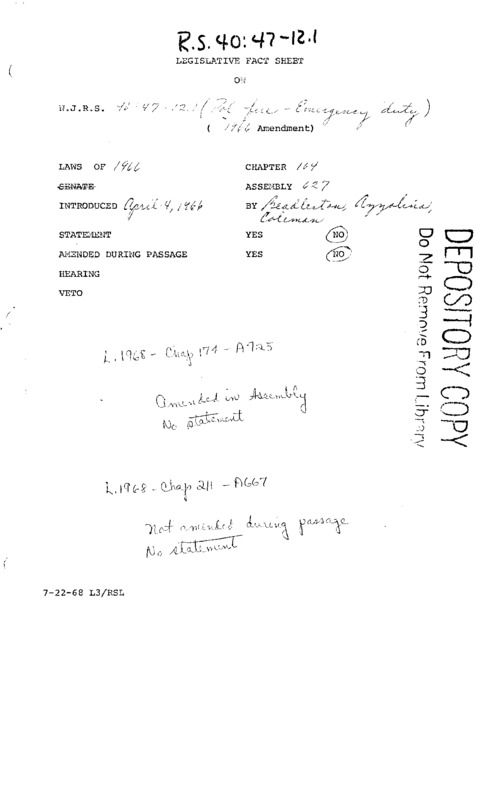 R.S. 40:47-12.1
LEGISLATIVE FACT SHEET
ON
N.J.R.S. 40:47-12.1 (Pol fire - Emergency duty)
( 1966 Amendment)
LAWS OF 1966 CHAPTER 164
SENATE ASSEMBLY 627
INTRODUCED April 4, 1966 BY Beadleston, Azzolina,
Coleman
STATEMENT YES NO
AMENDED DURING PASSAGE YES NO
HEARING
VETO
DEPOSITORY COPY
Do Not Remove From Library
L.1968 - Chap 174 - A725
Amended in Assembly
No statement
L.1968 - Chap 211 - A667
Not amended during passage
No statement
7-22-68 L3/RSL